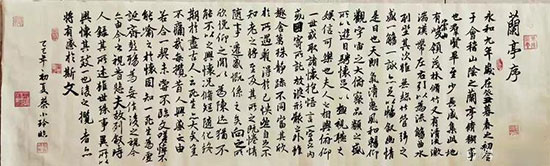 蘭亭序
永和九年歲在癸丑暮春之初會
于會稽山陰之蘭亭脩禊事
也羣賢畢至少長咸集此地
有崇山峻領茂林脩竹又有清流激
湍暎帶左右引以為流觴曲水
列坐其次雖無絲竹管弦之
盛一觴一詠亦足以暢敘幽情
是日也天朗氣清惠風和暢仰
觀宇宙之大俯察品類之盛
所以遊目騁懷足以極視聽之
娛信可樂也夫人之相與俯仰
一世或取諸懷抱悟言一室之內
或因寄所託放浪形骸之外雖
趣舍萬殊靜躁不同當其欣
於所遇暫得於己快然自足不
知老之將至及其所之既惓情
隨事遷感慨係之矣向之所
欣俛仰之間以為陳迹猶不
能不以之興懷況脩短隨化終
期於盡古人云死生亦大矣豈
不痛哉每攬昔人興感之由
若合一契未嘗不臨文嗟悼不
能喻之於懷固知一死生為虛
誕齊彭殤為妄作後之視今
亦由今之視昔悲夫故列敘時
人錄其所述雖世殊事異所以
興懷其致一也後之攬者亦
將有感於斯文
年初夏蔡小